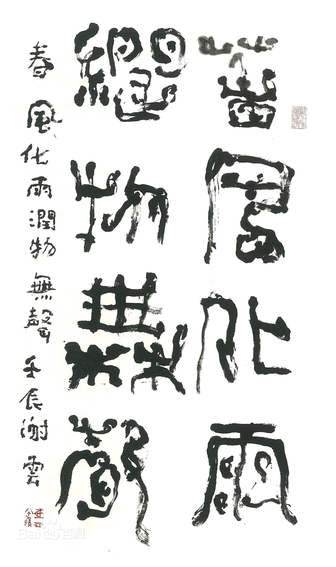 春風化雨
潤物無聲
春風化雨潤物無聲壬辰謝雲
Bai百科